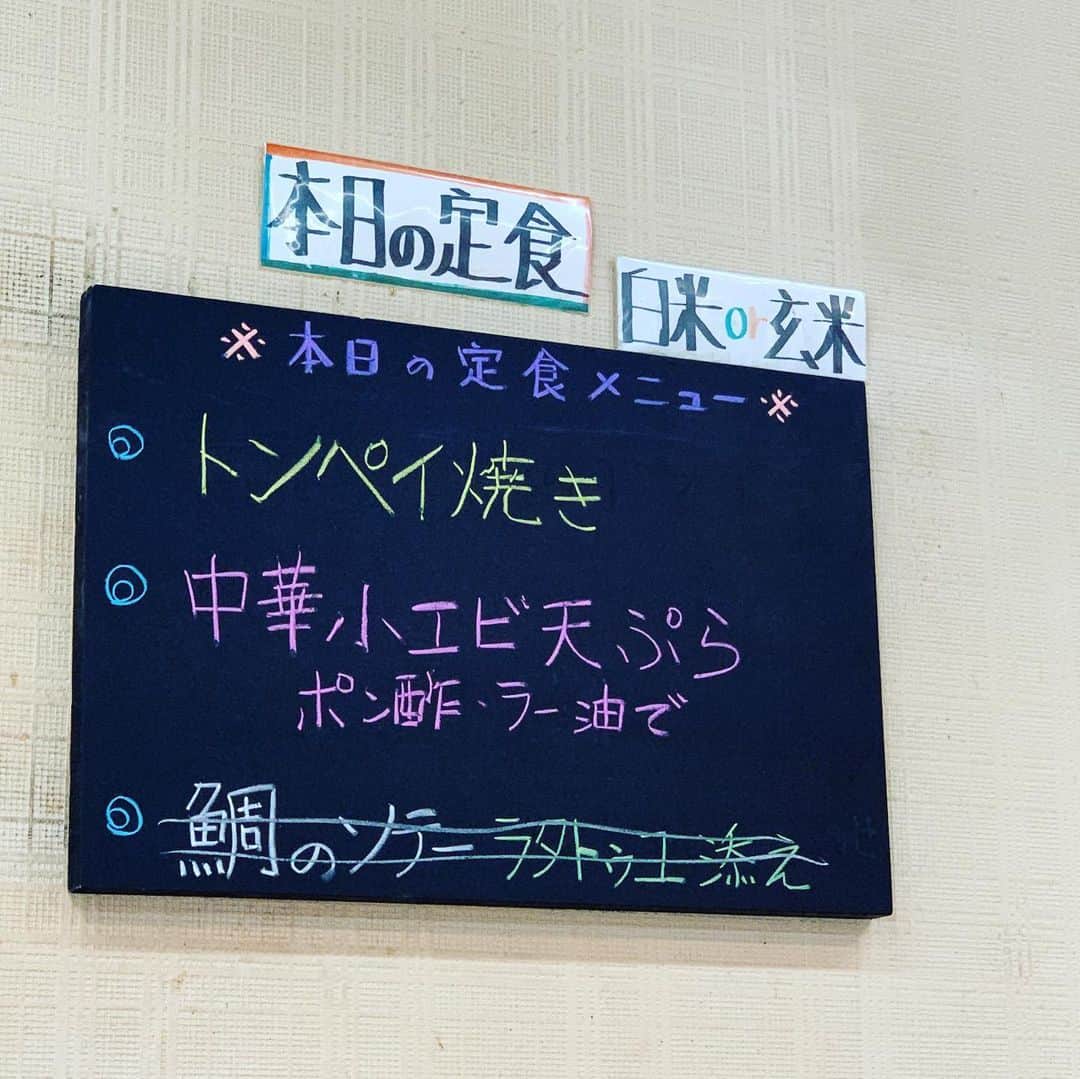 本日の定食
白米or玄米
※本日の定食メニュー※
◎トンペイ焼き
◎中華小エビ天ぷら
ポン酢・ラー油で
◎鯛のソテー ラタトゥユ添え